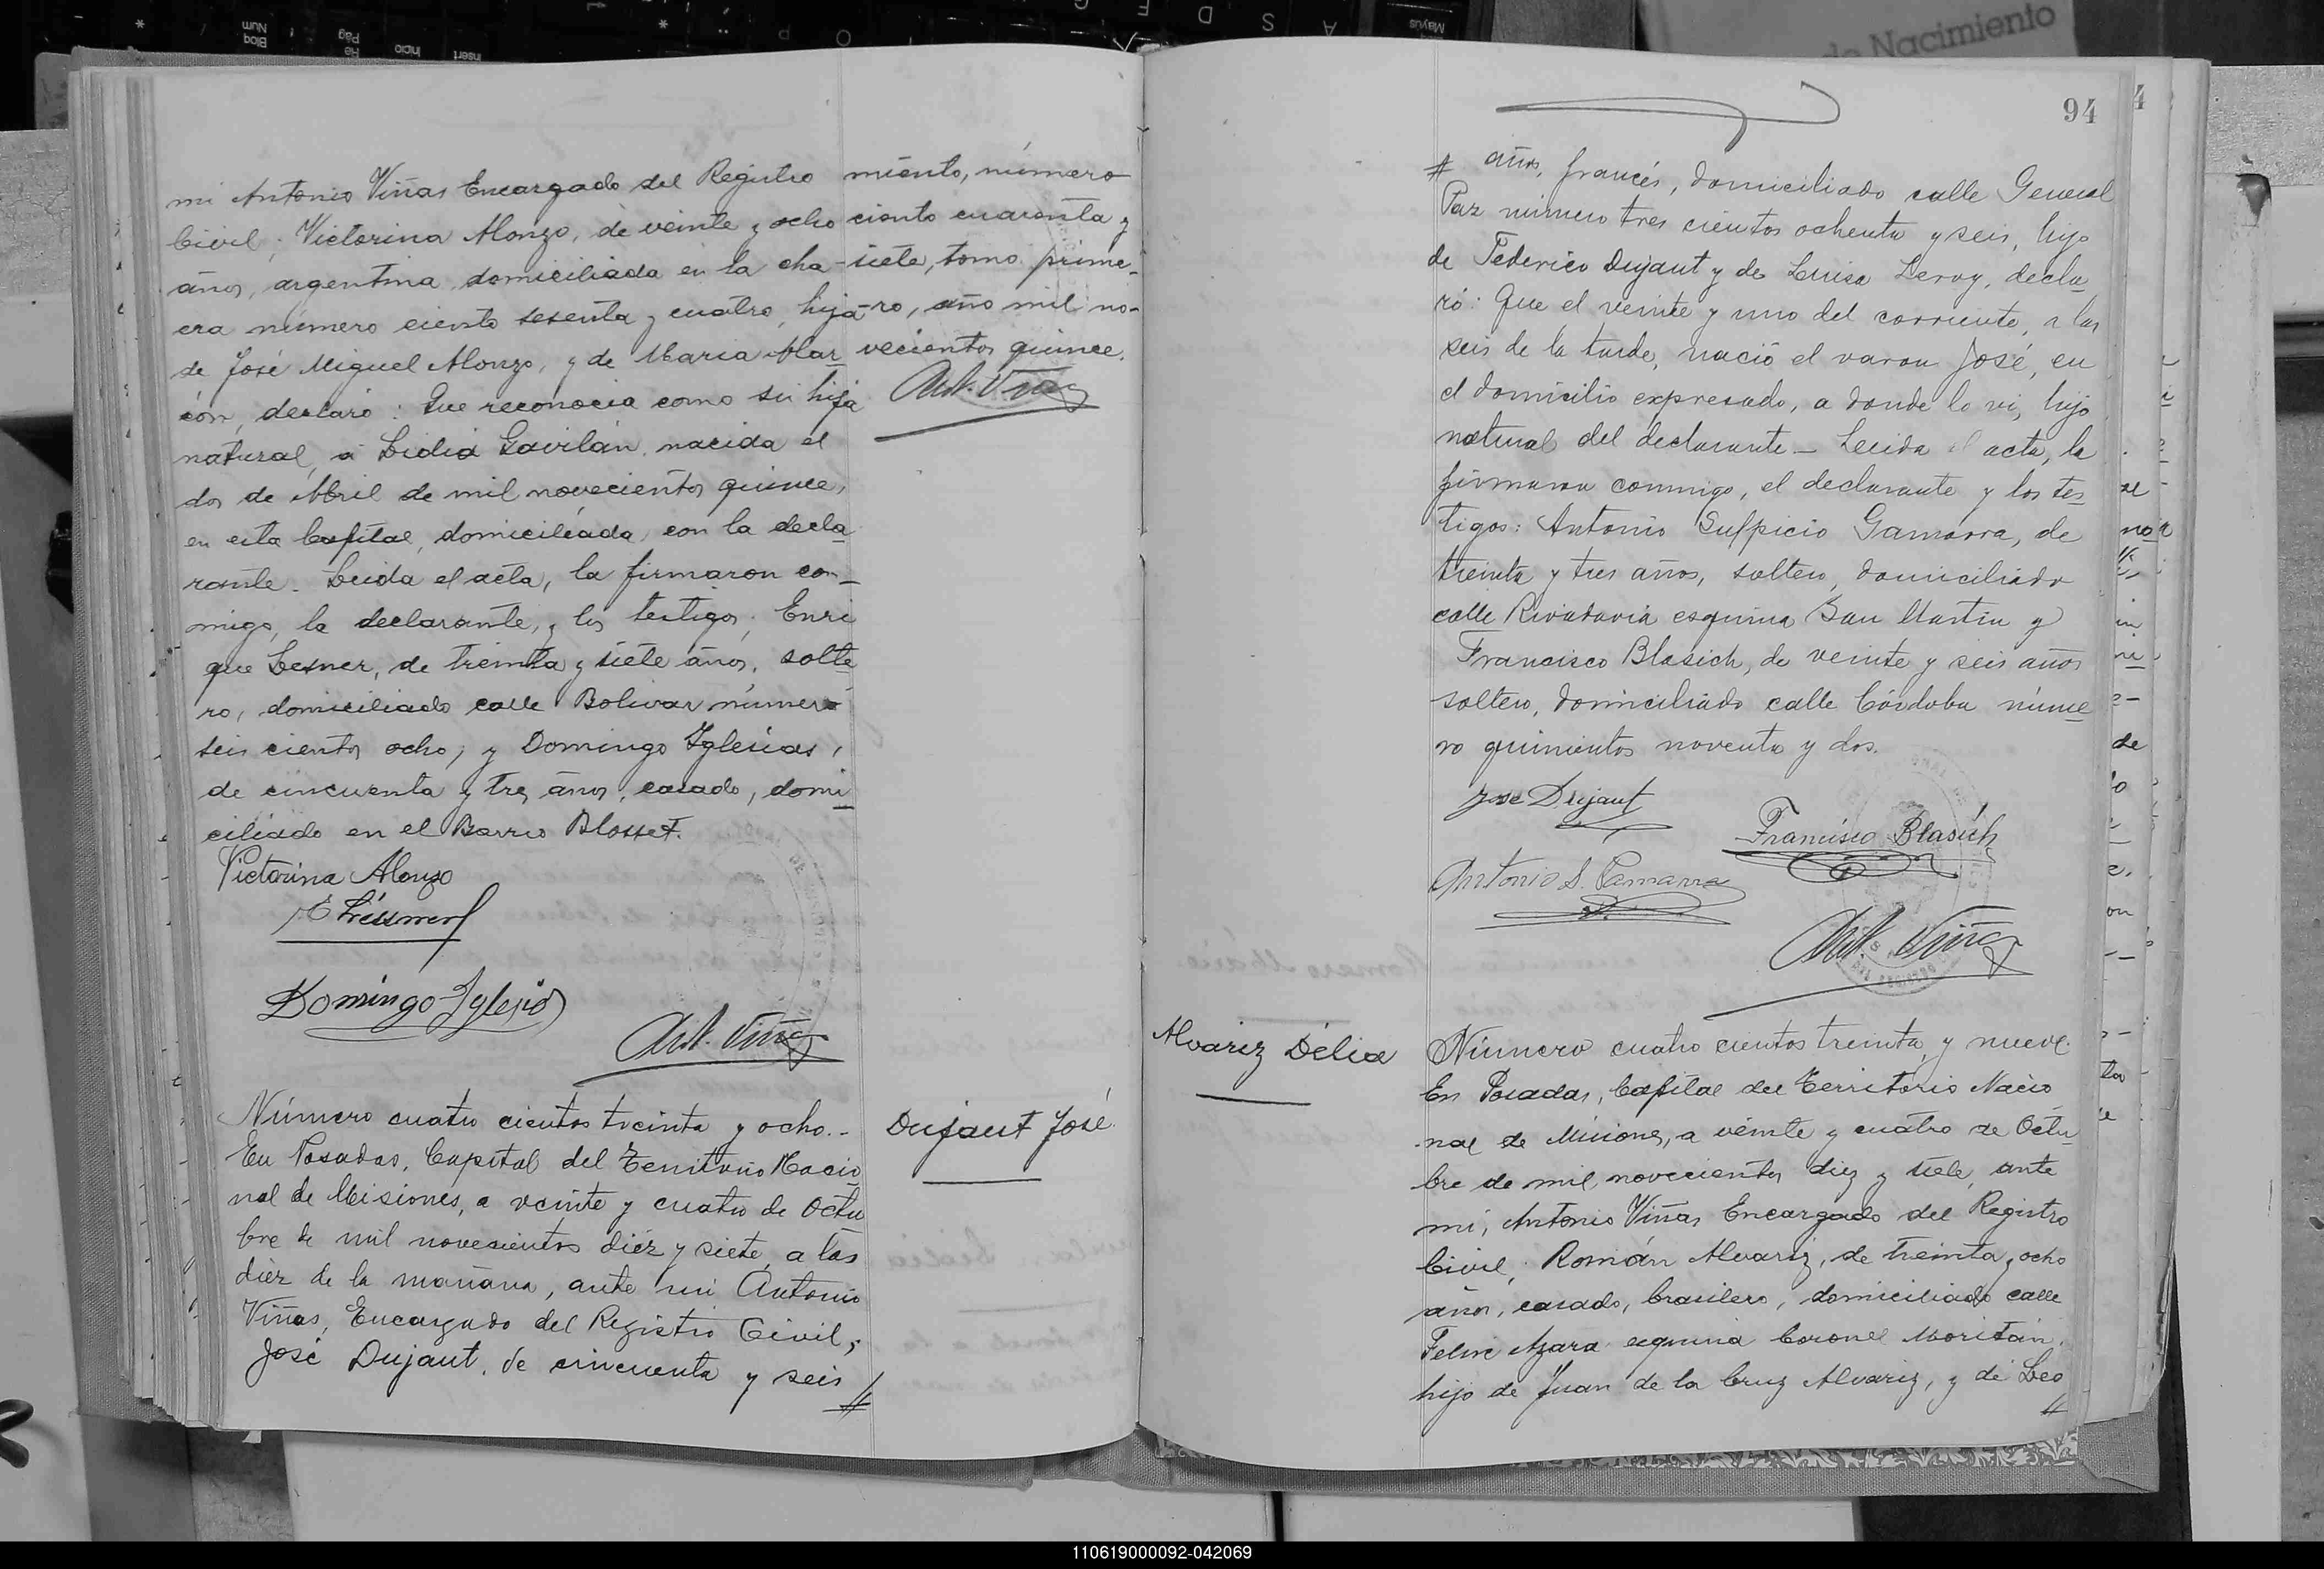 mi Antonio Viñas Encargado del Registro
Civil; Victorina Alonzo, de veinte y ocho
años, argentina domiciliada en la cha-
cra número ciento sesenta y cuatro, hija
de José Miguel Alonzo, y de Maria Alar
cón, declaró: Que reconocia como su hija
natural, a Lidia Gavilán, nacida el
dos de Abril de mil novecientos quince,
en esta Capital, domiciliada, con la decla
rante. Leida el acta, la firmaron con-
migo, la declarante, y los testigos; Enri
que Lesner, de treinta y siete años, solte
ro, domiciliado calle Bolivar número
seis cientos ocho, y Domingo Yglesias,
de cincuenta y tres años, casado, domi
ciliado en el Barrio Blosset.
Victorina Alonzo
Domingo Yglesias
Ant. Viñas
miento, número
ciento cuarenta y
siete, tomo prime-
ro, año mil no-
vecientos quince.
Ant. Viñas
Número cuatro cientos treinta y ocho.-
En Posadas, Capital del Territorio Nacio
nal de Misiones, a veinte y cuatro de Octu
bre de mil novecientos diez y siete, a las
diez de la mañana, ante mi Antonio
Viñas, Encargado del Registro Civil;
José Dujaut, de cincuenta y seis
Dujaut José
94
años, francés, domiciliado calle General
Paz número tres cientos ochenta y seis, hijo
de Federico Dujaut y de Luisa Leroy, decla
ró: Que el veinte y uno del corriente, a las
seis de la tarde, nació el varon José, en
el domicilio expresado, a donde lo vi, hijo
natural del declarante - Leida el acta, la
firmaron conmigo, el declarante y los tes
tigos: Antonio Sulpicio Gamarra, de
treinta y tres años, soltero, domiciliado
calle Rivadavia esquina San Martin y
Francisco Blasich, de veinte y seis años
soltero, domiciliado calle Córdoba núme
ro quinientos noventa y dos.
Jose Dujaut
Francisco Blasich
Antonio S. Gamarra
Ant. Viñas
Alvariz Délia
Número cuatro cientos treinta y nueve.
En Posadas, Capital del Territorio Nacio
nal de Misiones, a veinte y cuatro de Octu
bre de mil novecientos diez y siete, ante
mi, Antonio Viñas Encargado del Registro
Civil, Román Alvariz, de treinta y ocho
años, casado, brasilero, domiciliado calle
Felix Azara esquina Coronel Moritán,
hijo de Juan de la Cruz Alvariz, y de Leo
de Nacimiento
110619000092-042069